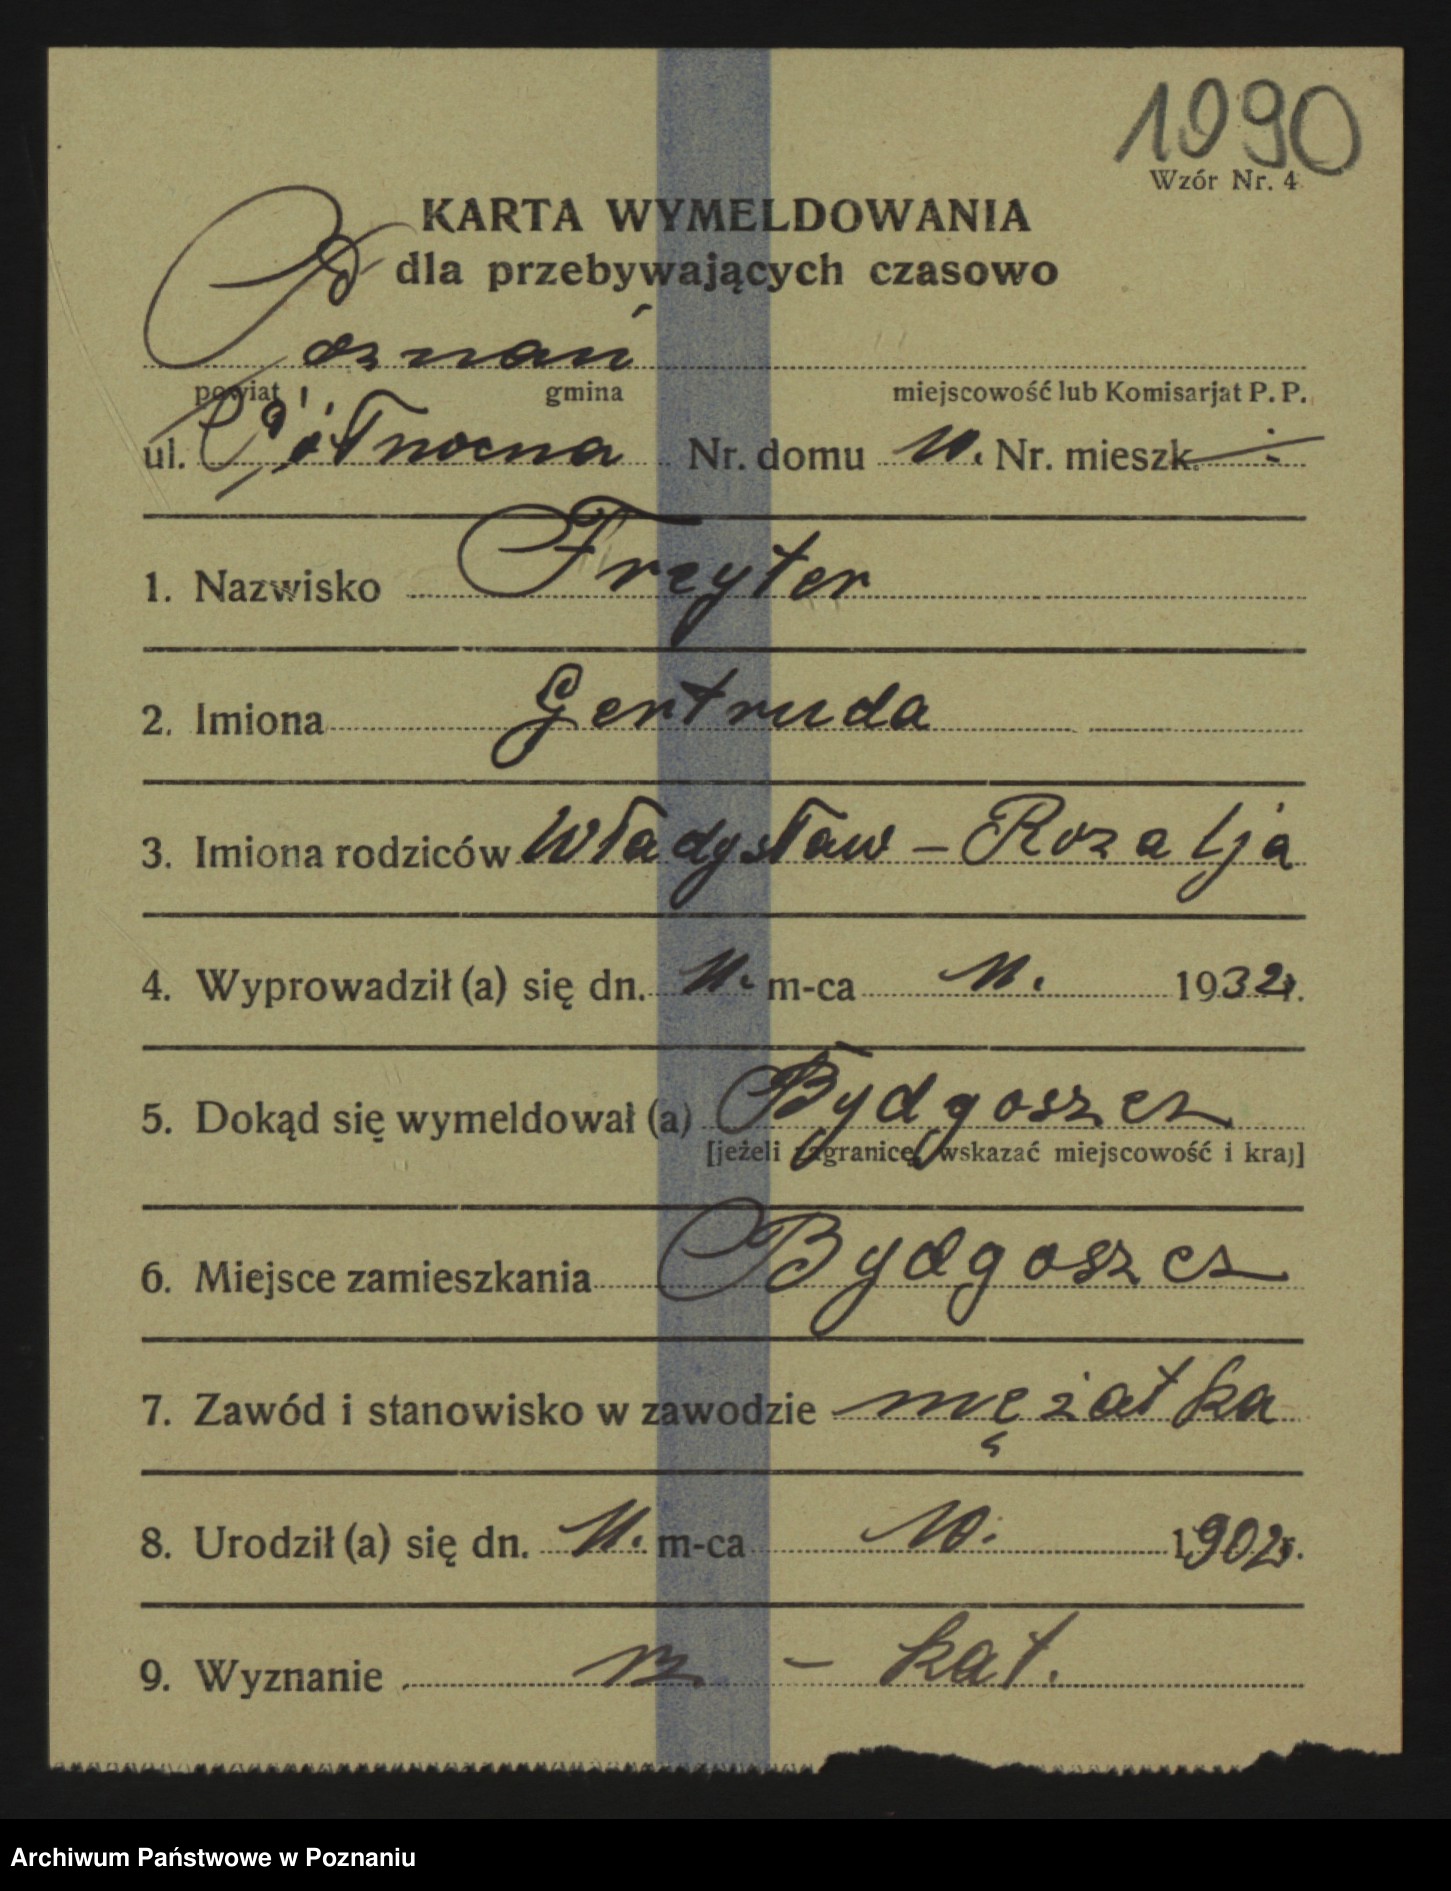 1090
Wzór Nr. 4
KARTA WYMELDOWANIA
dla przebywających czasowo
Poznań
powiat gmina miejscowość lub Komisarjat P. P.
ul. Północna Nr. domu 10. Nr. mieszk. ÷
1. Nazwisko Frzyter
2. Imiona Gertruda
3. Imiona rodziców Władysław – Rozalja
4. Wyprowadził (a) się dn. 11. m-ca 11. 1932 r.
5. Dokąd się wymeldował (a) Bydgoszcz
[jeżeli zagranicę, wskazać miejscowość i kraj]
6. Miejsce zamieszkania Bydgoszcz
7. Zawód i stanowisko w zawodzie mężatka
8. Urodził (a) się dn. 11. m-ca 10. 1902 r.
9. Wyznanie rz – kat.
Archiwum Państwowe w Poznaniu